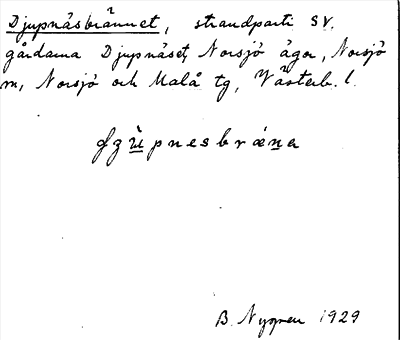 Djupnäsbrännet, strandparti SV.
gårdarna Djupnäset, Norsjö ägor, Norsjö
sn, Norsjö och Malå tg, Västerb. l.
B. Nygren 1929